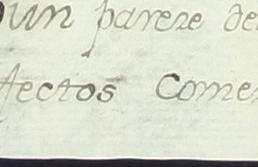 un parece de
fectos Comer